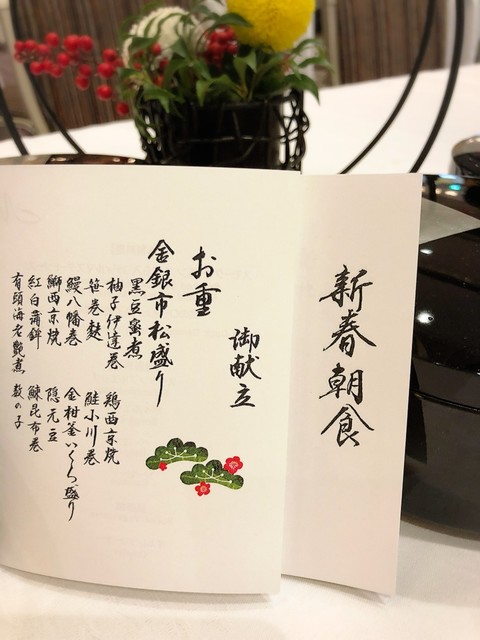 新春朝食
御献立
お重
金銀市松盛り
黒豆蜜煮
柚子伊達巻
笹巻麩
鰻八幡巻
鰤西京焼
紅白蒲鉾
有頭海老艶煮
鶏西京焼
鮭小川巻
金柑釜いくら盛り
隠元豆
鰊昆布巻
数の子